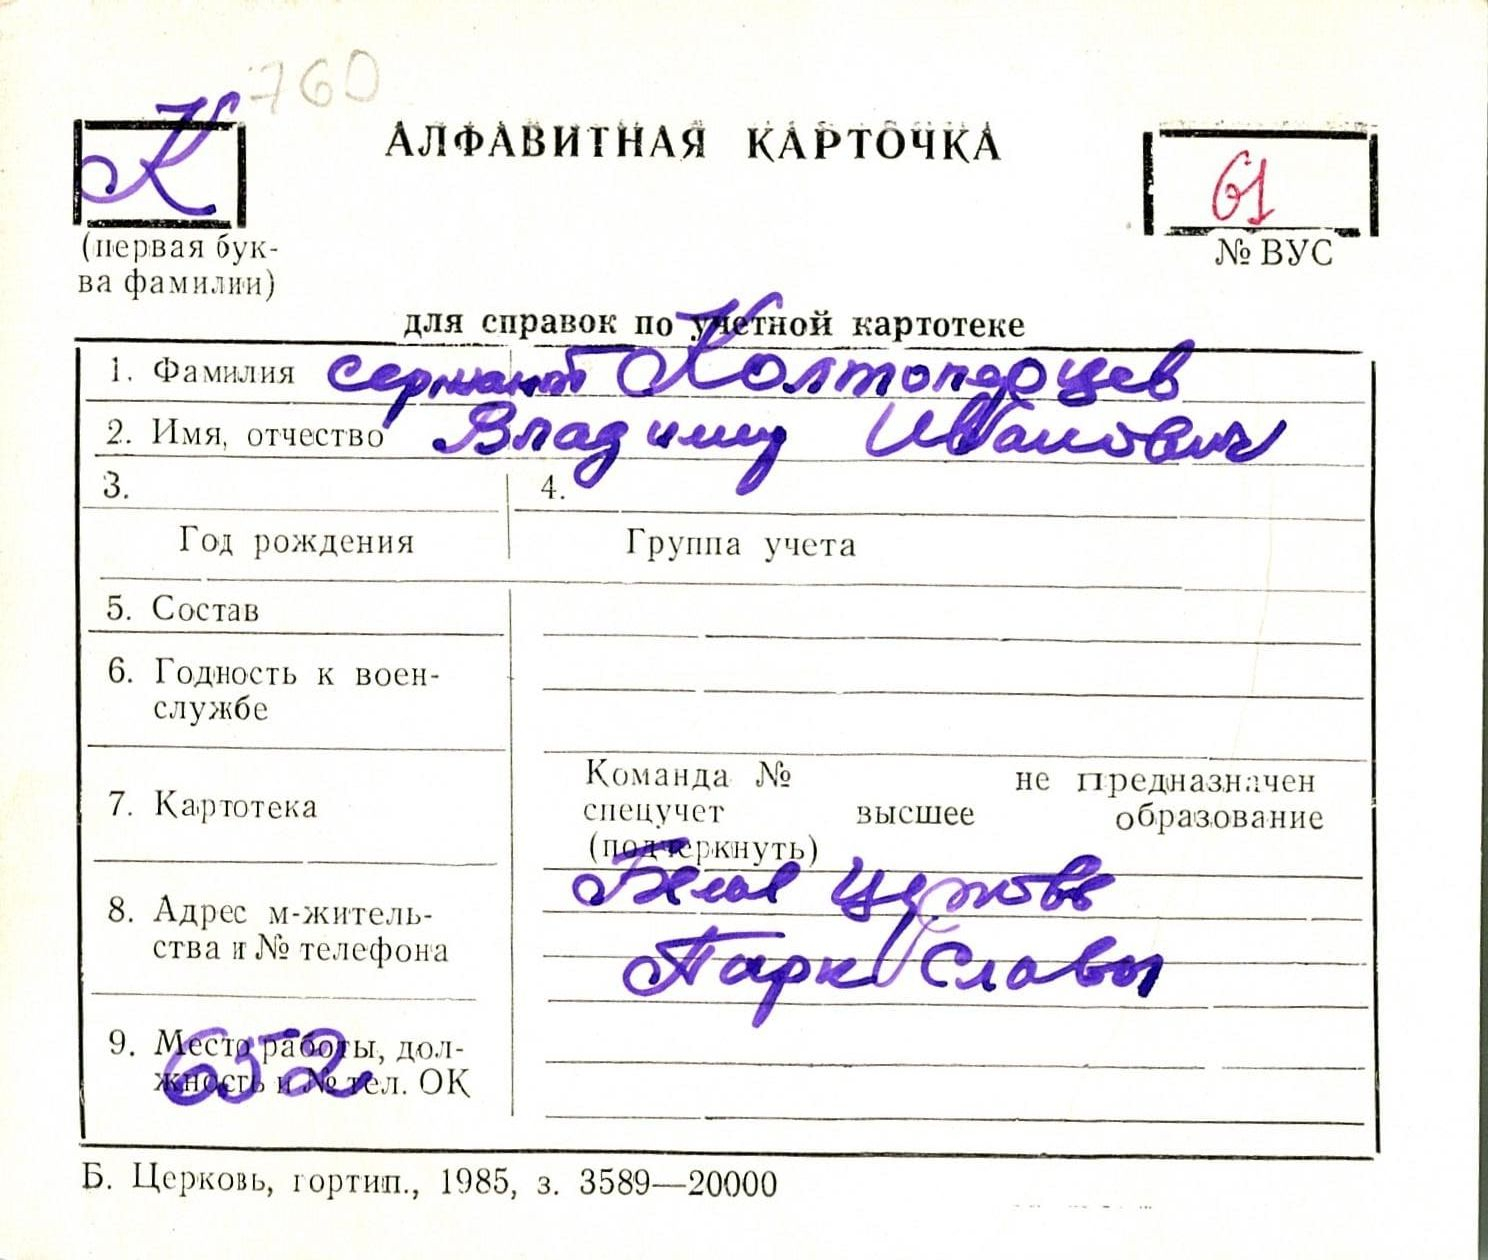 760
К
АЛФАВИТНАЯ КАРТОЧКА
61
(первая бук-
ва фамилии)
№ ВУС
для справок по учетной картотеке
1. Фамилия сержант Колтоперцев
2. Имя, отчество Владимир Иванович
3.
4.
Год рождения
Группа учета
5. Состав
6. Годность к воен-
службе
7. Картотека
Команда № не предназначен
спецучет высшее образование
(подчеркнуть)
8. Адрес м-житель-
ства и № телефона
Белая Церковь
Парк Славы
9. Место работы, дол-
жность и № тел. ОК
652
Б. Церковь, гортип., 1985, з. 3589—20000